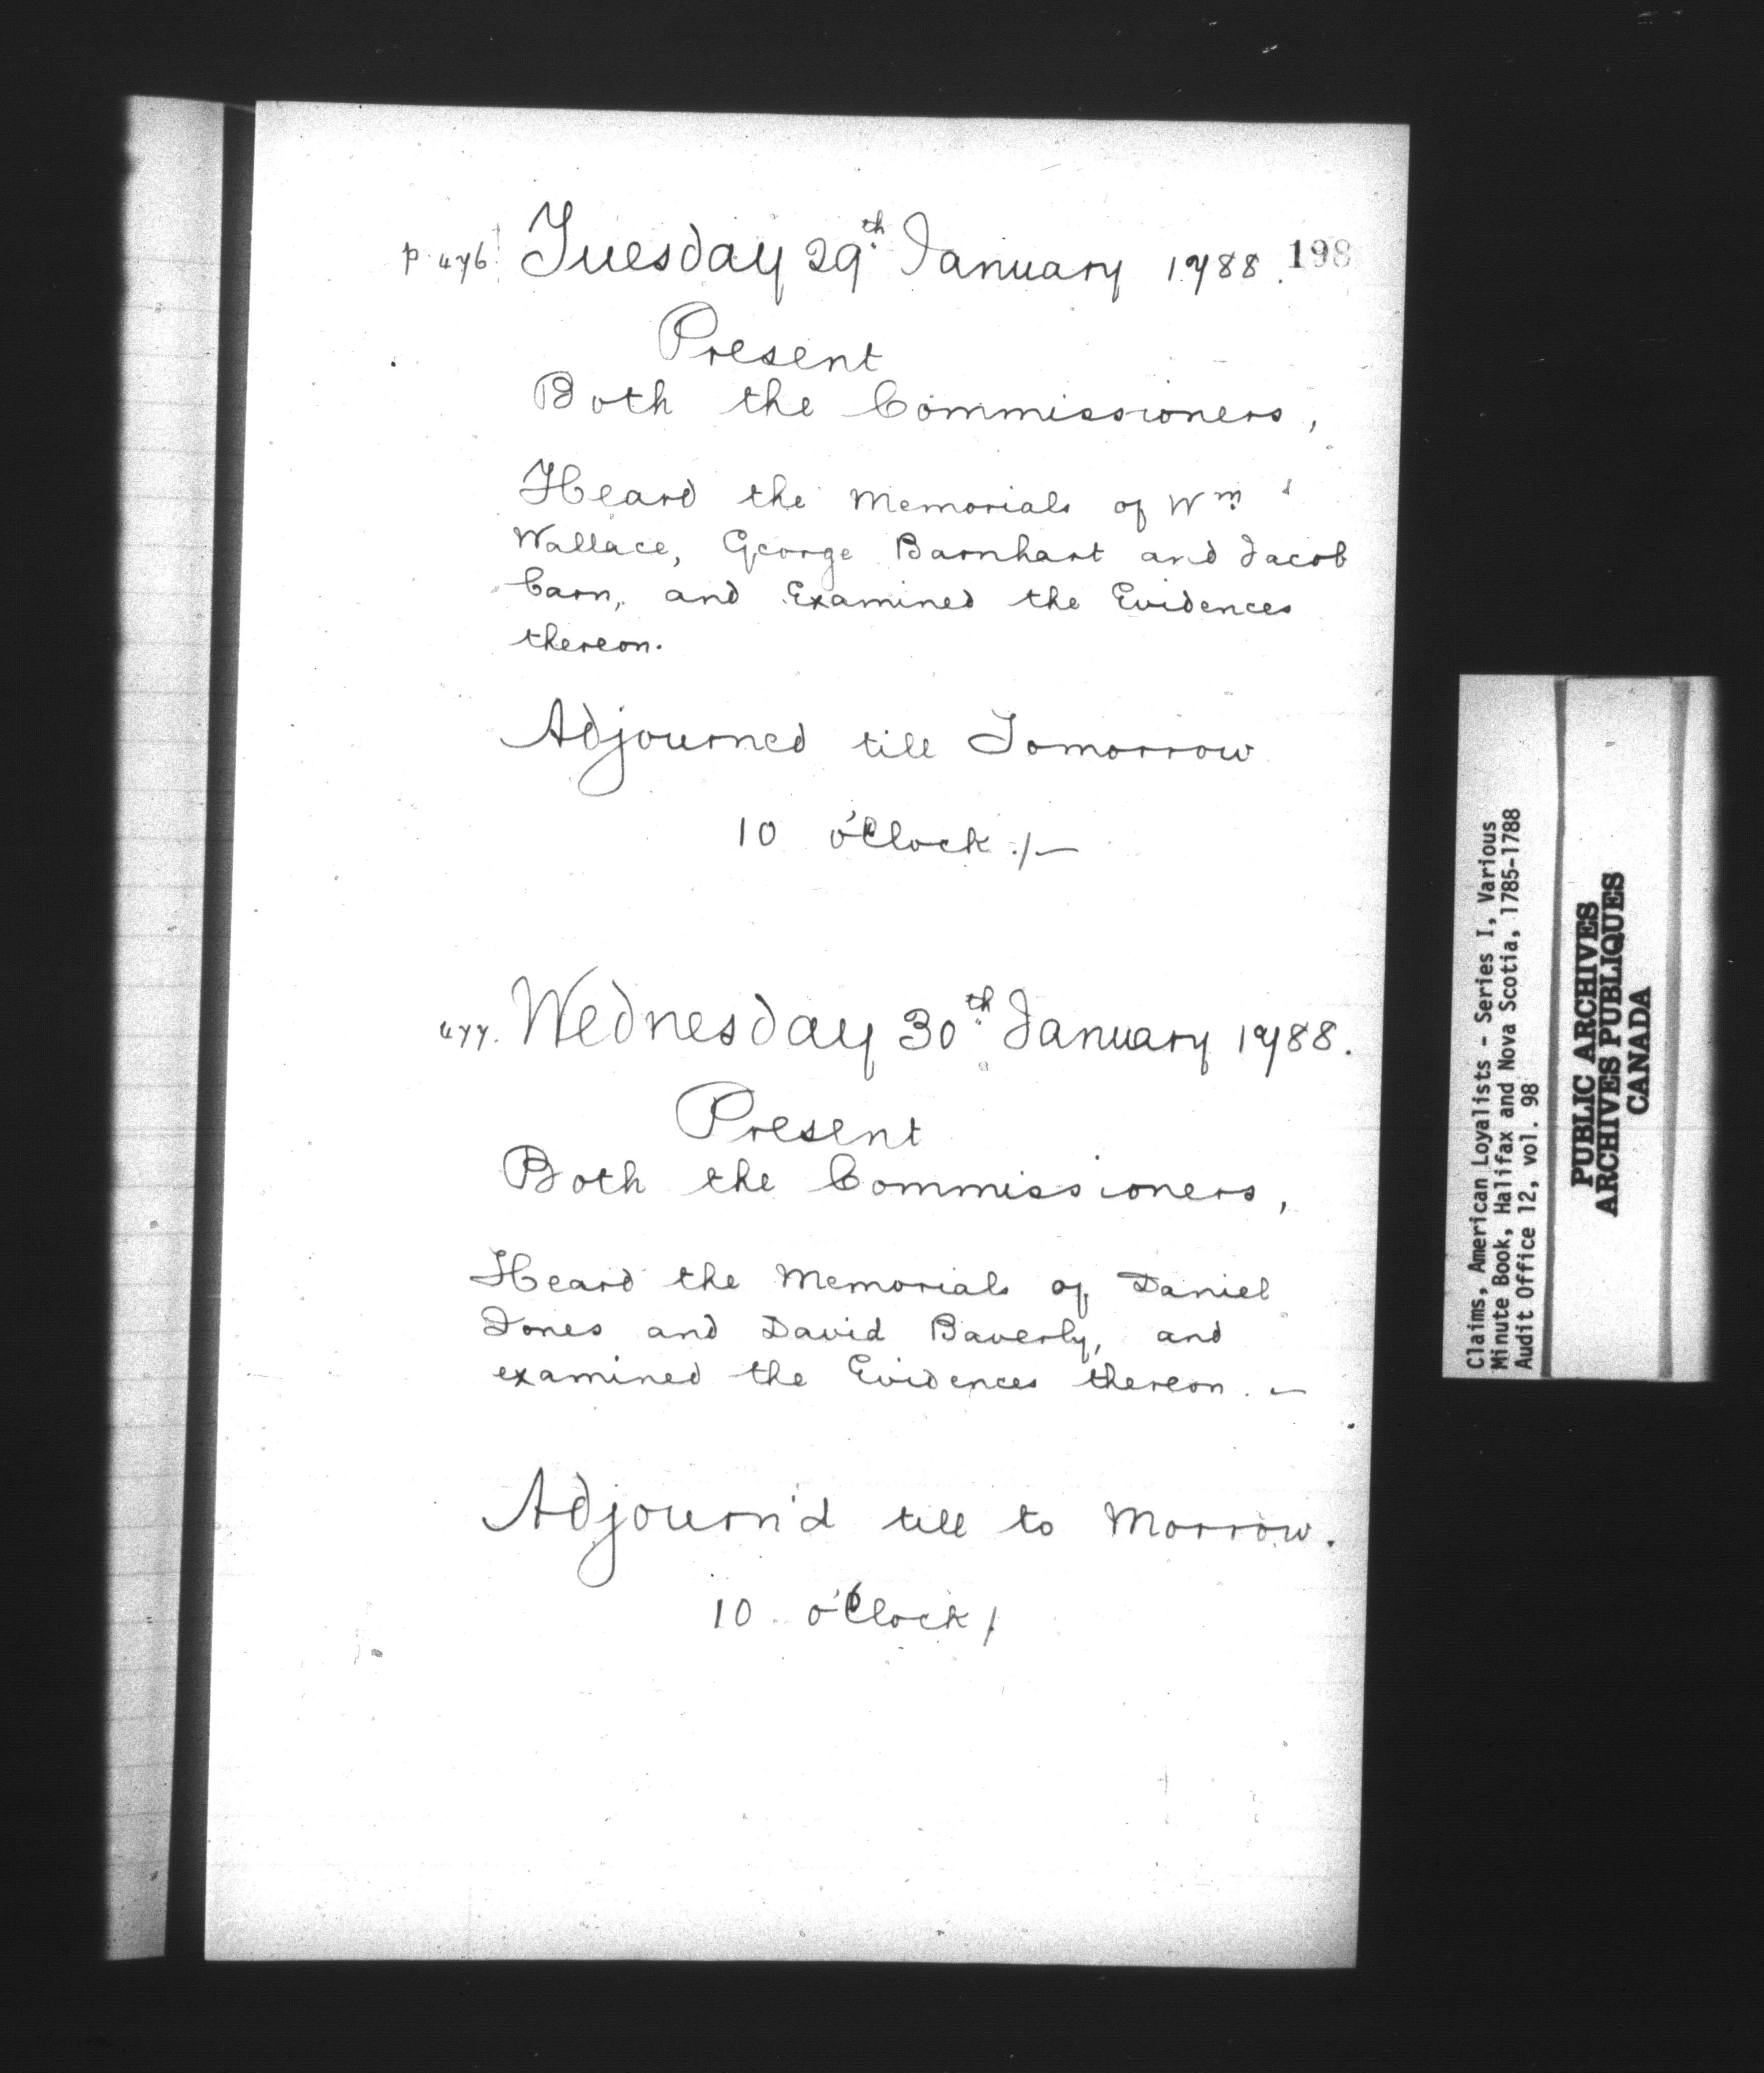 p. 476. Tuesday 29th January 1788. 198
Present
Both the Commissioners,
Heard the Memorials of Wm
Wallace, George Barnhart and Jacob
Carn, and Examined the Evidences
thereon.
Adjourned till Tomorrow
10 o'Clock ./—
477. Wednesday 30th January 1788.
Present
Both the Commissioners,
Heard the Memorials of Daniel
Jones and David Baverly, and
examined the Evidences thereon. —
Adjourn'd till to Morrow.
10 o'Clock /
Claims, American Loyalists - Series I, Various
Minute Book, Halifax and Nova Scotia, 1785-1788
Audit Office 12, vol. 98
PUBLIC ARCHIVES
ARCHIVES PUBLIQUES
CANADA